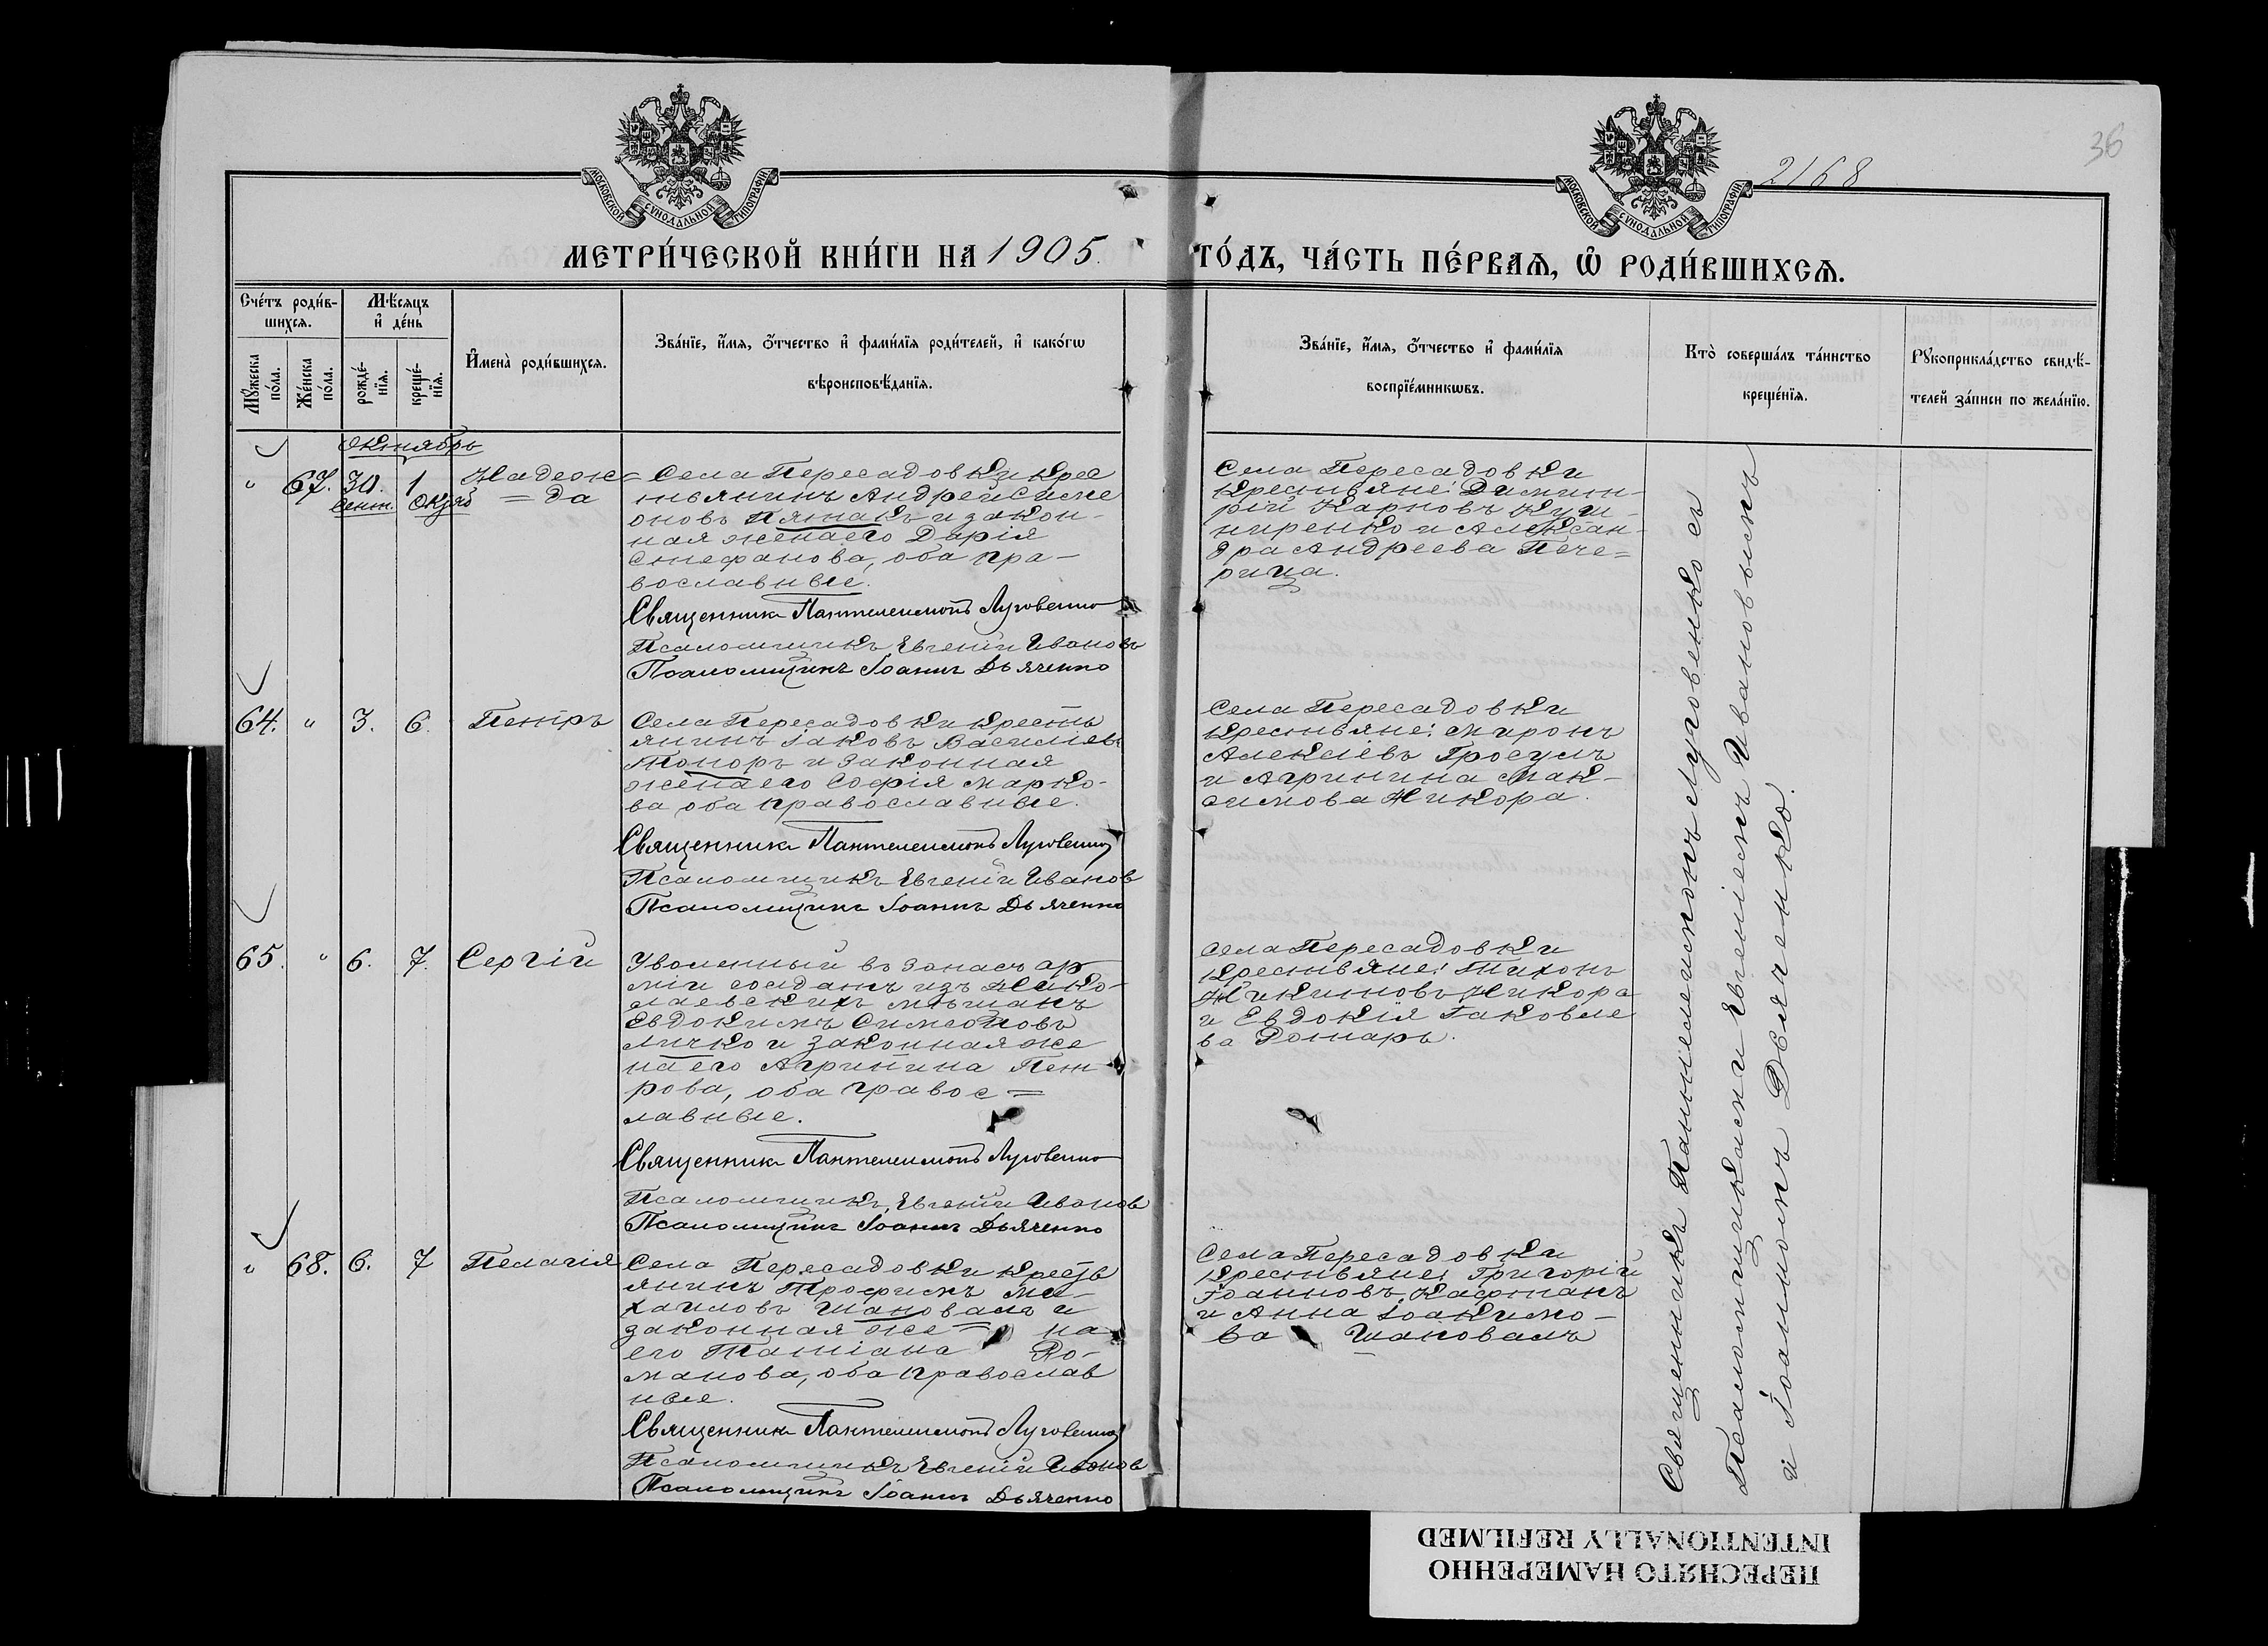 36
2168
МОСКОВСКОЙ СѴНОДАЛЬНОЙ ТИПОГРАФІИ
МОСКОВСКОЙ СѴНОДАЛЬНОЙ ТИПОГРАФІИ
МЕТРИ́ЧЕСКОЙ КНИ́ГИ НА 1905.
ГО́ДЪ, ЧА́СТЬ ПЕ́РВАѦ, Ѡ҆ РОДИ́ВШИХСѦ.
Сче́тъ роди́в-
шихсѧ.
Мꙋ́жеска
по́ла.
Же́нска
по́ла.
Мѣ́сѧцъ
и҆ де́нь
рожде́-
нїѧ.
креще́-
нїѧ.
И҆мена̀ роди́вшихсѧ.
Зва́нїе, и҆́мѧ, ѻ҆́тчество и҆ фами́лїѧ роди́телей, и҆ како́гѡ
вѣроисповѣ́данїѧ.
Зва́нїе, и҆́мѧ, ѻ҆́тчество и҆ фами́лїѧ
воспрїе́мникѡвъ.
Кто̀ соверша́лъ та́инство
креще́нїѧ.
Рꙋкоприкла́дство свидѣ́-
телей за́писи по жела́нїю.
Октябрь
" 67. 30. 1
Сент. Октяб
Надеж=
=да
Села Пересадовки крес
тьянинъ Андрей Симе
оновъ Пятакъ и закон-
ная жена его Дарія
Стефанова, оба пра-
вославные.
Священникъ Пантелеимонъ Луговенко
Псаломщикъ Евгеній Ивановъ
Псаломщикъ Іоаннъ Дьяченко
Села Пересадовки
Крестьяне: Димит-
рій Карповъ Куш-
ниренко и Алексан-
дра Андреева Пече=
рица.
64. " 3. 6. Петръ
Села Пересадовки кресть
янинъ Іаковъ Василіевъ
Топоръ и законная
жена его Софія Марко-
ва оба православные.
Священникъ Пантелеимонъ Луговенко
Псаломщикъ Евгеній Иванов
Псаломщикъ Іоаннъ Дьяченко
Села Пересадовки
Крестьяне: Миронъ
Алексіевъ Гросулъ
и Агрипина Мак-
симова Жикора.
65. " 6. 7. Сергій
Уволенный въ запасъ ар
міи солдатъ изъ Нико-
лаевскихъ мѣщанъ
Евдокимъ Симеоновъ
Личко и законная же
на его Агрипина Пет
рова, оба правос=
лавные.
Священникъ Пантелеимонъ Луговенко
Псаломщикъ Евгеній Иванов
Псаломщикъ Іоаннъ Дьяченко
Села Пересадовки
Крестьяне: Тихонъ
Никитовъ Жикора
и Евдокія Іаковле
ва Ротарь.
" 68. 6. 7 Пелагія
Села Пересадовки кресть
янинъ Трофимъ Ми-
хаиловъ Шаповалъ и
законная же= на
его Татіана Ро-
манова, оба православ
ные.
Священникъ Пантелеимонъ Луговенко
Псаломщикъ Евгеній Иванов
Псаломщикъ Іоаннъ Дьяченко
Села Пересадовки
Крестьяне: Григорій
Іоанновъ Кафтанъ
и Анна Іоакимо-
ва Шаповалъ
Священникъ Пантелеимонъ Луговенко съ
Псаломщиками Евгеніемъ Ивановымъ
и Іоанномъ Дьяченко.
ПЕРЕСНЯТО НАМЕРЕННО
INTENTIONALLY REFILMED